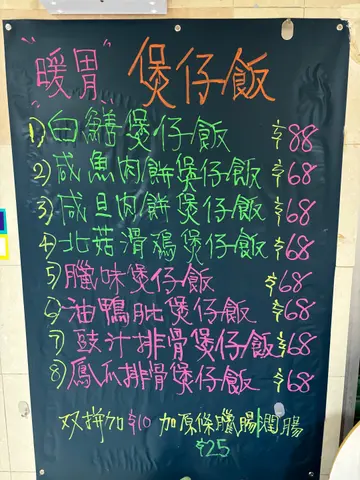 "暖胃" 煲仔飯
1) 白鱔煲仔飯 $88
2) 咸魚肉餅煲仔飯 $68
3) 咸旦肉餅煲仔飯 $68
4) 北菇滑鷄煲仔飯 $68
5) 臘味煲仔飯 $68
6) 油鴨肶煲仔飯 $68
7) 豉汁排骨煲仔飯 $68
8) 鳳爪排骨煲仔飯 $68
双拼加$10 加原條臘腸|潤腸
$25